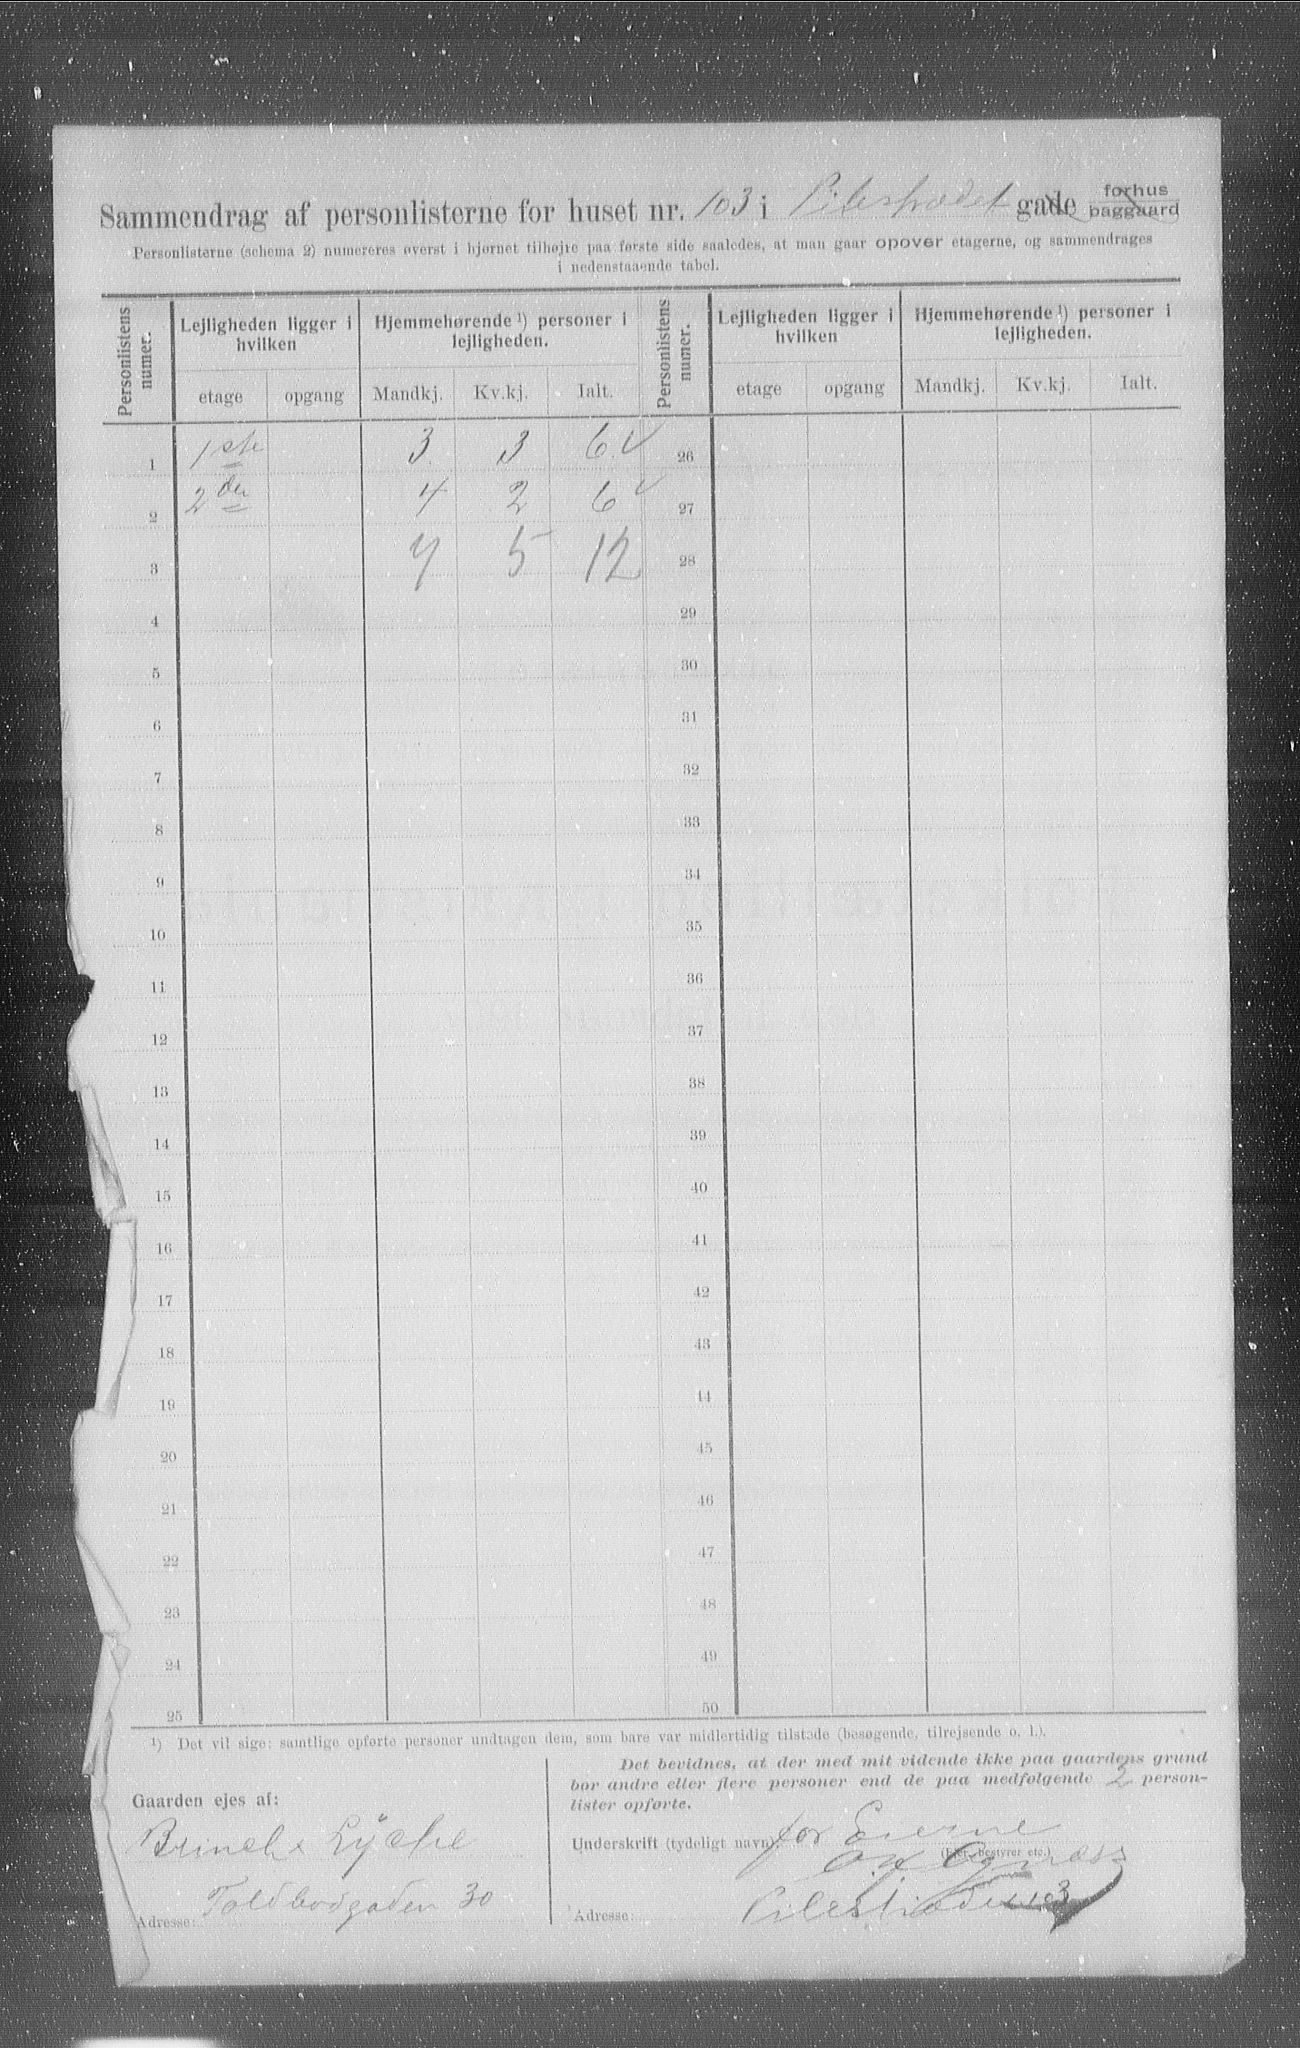 Sammendrag af personlisterne for huset nr. 103 i Pilestrædet gade forhus baggaard
Personlisterne (schema 2) numereres øverst i hjørnet tilhøjre paa første side saaledes, at man gaar opover etagerne, og sammendrages
i nedenstaaende tabel.
Personlistens numer. Lejligheden ligger i hvilken Hjemmehørende ¹) personer i lejligheden. Personlistens numer. Lejligheden ligger i hvilken Hjemmehørende ¹) personer i lejligheden.
etage opgang Mandkj. Kv.kj. Ialt. etage opgang Mandkj. Kv.kj. Ialt.
1 1ste 3 3 6 ✓ 26
2 2den 4 2 6 ✓ 27
3 7 5 12 28
4 29
5 30
6 31
7 32
8 33
9 34
10 35
11 36
12 37
13 38
14 39
15 40
16 41
17 42
18 43
19 44
20 45
21 46
22 47
23 48
24 49
25 50
¹) Det vil sige: samtlige opførte personer undtagen dem, som bare var midlertidig tilstede (besøgende, tilrejsende o. l.).
Gaarden ejes af:
Brinch & Lyche
Adresse: Toldbodgaden 30
Det bevidnes, at der med mit vidende ikke paa gaardens grund
bor andre eller flere personer end de paa medfølgende 2 person-
lister opførte.
Underskrift (tydeligt navn): for Eierne
(Ejer, bestyrer etc.)
Adresse: Pilestrædet 103